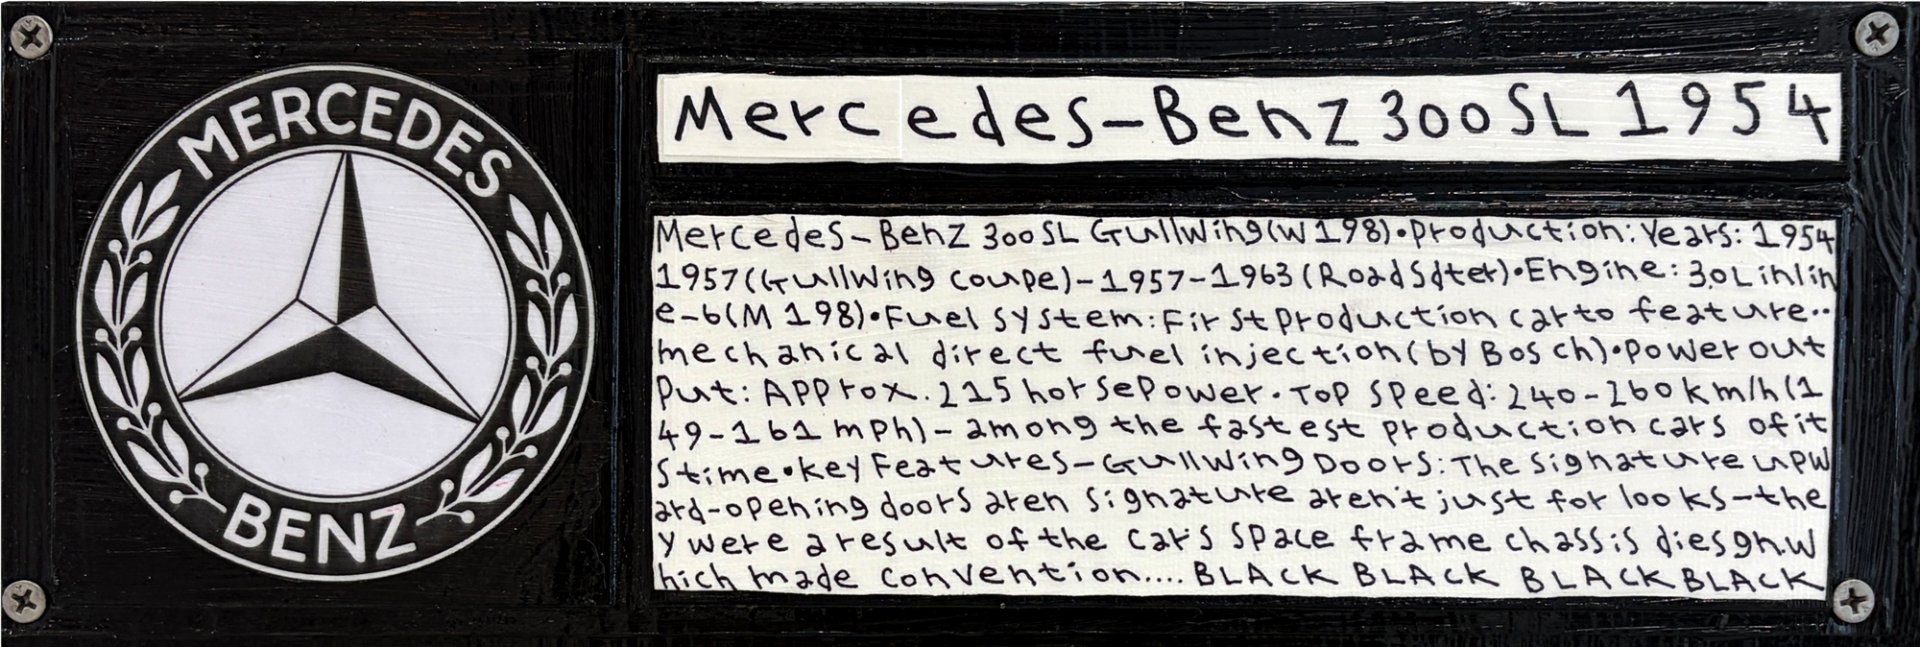 MERCEDES
BENZ
Mercedes-Benz 300SL 1954
Mercedes-Benz 300SL Gullwing(W198)•Production:Years:1954
1957(Gullwing coupe)-1957-1963(Roadsdter)•Engine:3.0L inlin
e-6(M198)•Fuel system:First production car to feature..
mechanical direct fuel injection(by Bosch)•Power out
put: Approx. 215 horsepower. Top speed: 240-260km/h(1
49-161 mph)-among the fastest production cars of it
stime•key Features-Gullwing Doors:The signature upw
ard-opening doors aren signature aren't just for looks-the
y were a result of the car's space frame chassis diesgn.w
hich made convention.... BLACK BLACK BLACK BLACK